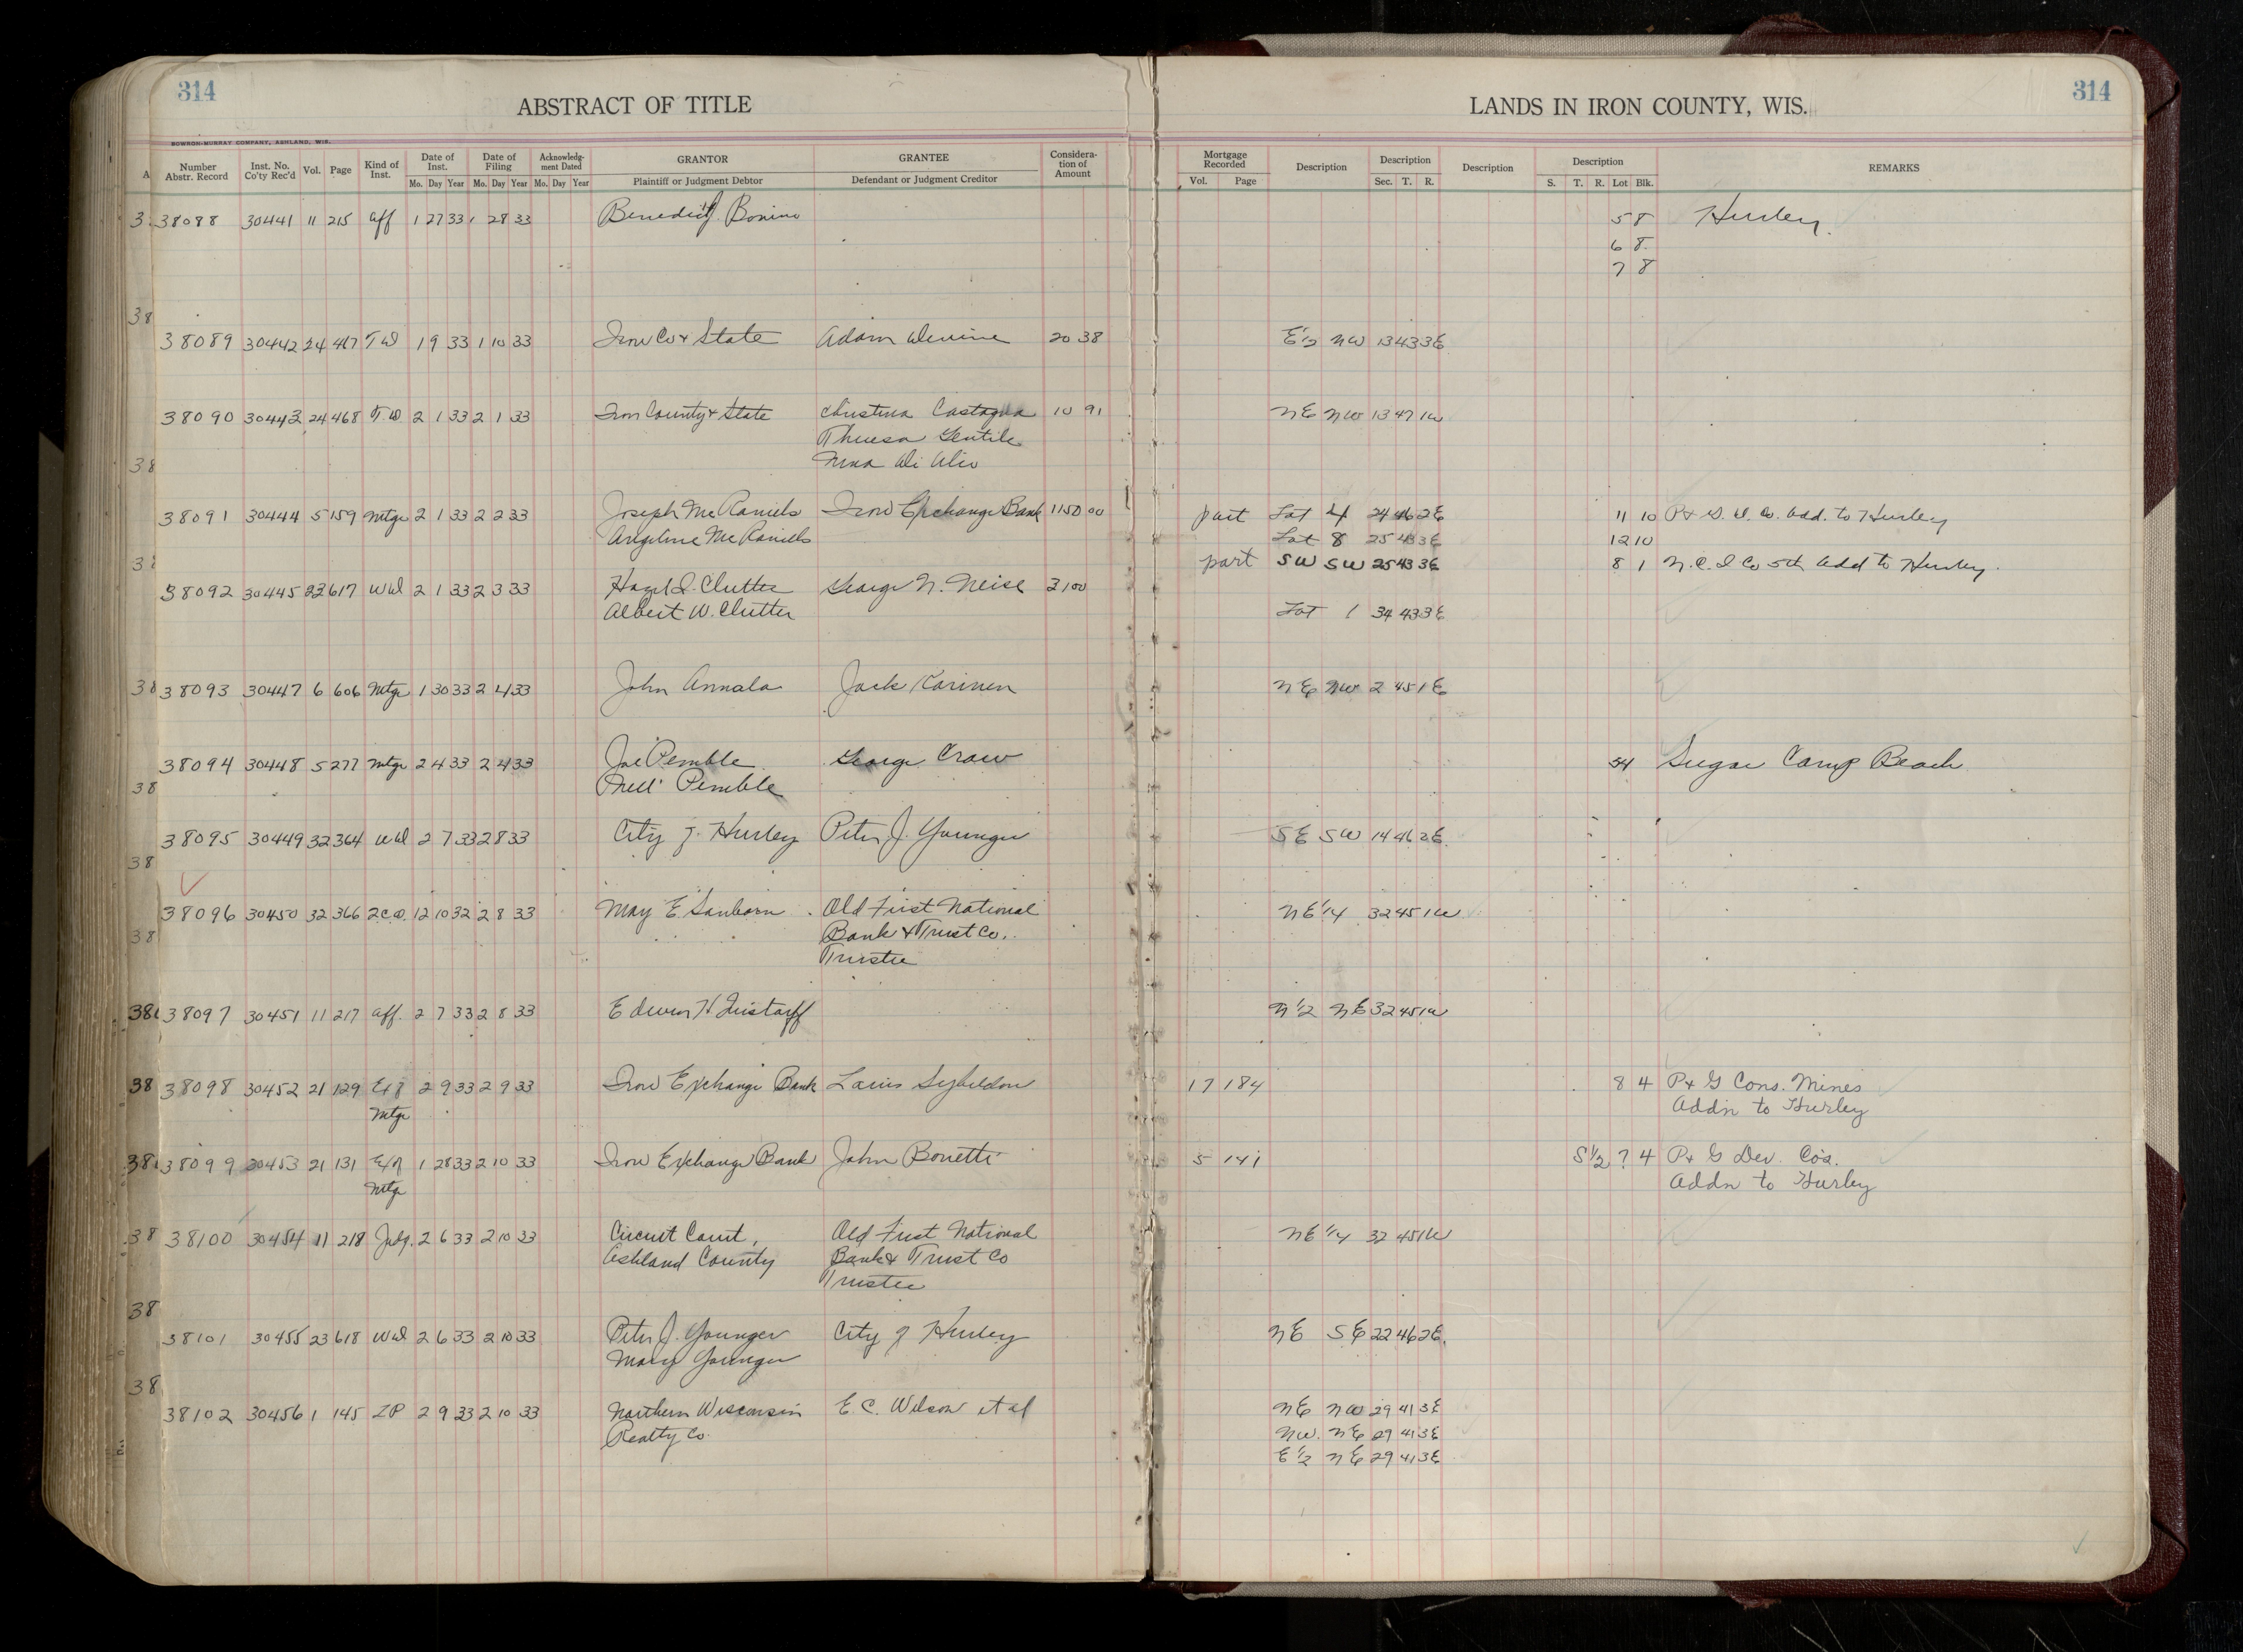 314
ABSTRACT OF TITLE
LANDS IN IRON COUNTY, WIS.
314
BOWRON-MURRAY COMPANY, ASHLAND, WIS.
Number Abstr. Record Inst. No. Co'ty Rec'd Vol. Page Kind of Inst. Date of Inst. Mo. Day Year Date of Filing Mo. Day Year Acknowledg-ment Dated Mo. Day Year GRANTOR Plaintiff or Judgment Debtor GRANTEE Defendant or Judgment Creditor Considera-tion of Amount Mortgage Recorded Vol. Page Description Description Sec. T. R. Description Description S. T. R. Lot Blk. REMARKS
38088 30441 11 215 Aff 1 27 33 1 28 33 Benedict J. Bonino 5 8 Hurley.
6 8
7 8
38089 30442 24 467 TD 1 9 33 1 10 33 Iron Co & State Adam Devine 20 38 E½ NW 13 43 3E
38090 30443 24 468 TD 2 1 33 2 1 33 Iron County & State Christina Castagna 10 91 NE NW 13 47 1W
Theresa Gentile
Nina Di Ulio
38091 30444 5 159 Mtge 2 1 33 2 2 33 Joseph McDaniels Iron Exchange Bank 1150 00 part Lot 4 24 46 2E 11 10 P & G. D. Co. Add. to Hurley
Angeline McDaniels Lot 8 25 43 3E 12 10
part SW SW 25 43 3E 8 1 N.C.I Co 5th Add to Hurley.
38092 30445 23 617 WD 2 1 33 2 3 33 Hazel I. Clutter George N. Neise 3100
Albert W. Clutter Lot 1 34 43 3E
38093 30447 6 606 Mtge 1 30 33 2 4 33 John Annala Jack Karinen NE NW 2 45 1E
38094 30448 5 277 Mtge 2 4 33 2 4 33 Joe Pemble George Craw 34 Sugar Camp Beach
Pemble
38095 30449 32 364 WD 2 7 33 2 8 33 City of Hurley Peter J. Younger SE SW 14 46 2E
38096 30450 32 366 2CD. 12 10 32 2 8 33 May E. Sanborn Old First National NE¼ 32 45 1W
Bank & Trust Co.
Trustee
38097 30451 11 217 Aff. 2 7 33 2 8 33 Edwin H. N½ NE 32 45 1W
38098 30452 21 129 Ext 2 9 33 2 9 33 Iron Exchange Bank Louis Sybeldon 17 184 8 4 P & G Cons. Mines
Mtge Addn to Hurley
38099 30453 21 131 Ext 1 28 33 2 10 33 Iron Exchange Bank John Bonetti 5 141 S½ 7 4 P & G Dev. Co's.
Mtge Addn to Hurley
38100 30454 11 218 Judg. 2 6 33 2 10 33 Circuit Court, Old First National NE ¼ 32 45 1W
Ashland County Bank & Trust Co
Trustee
38101 30455 23 618 WD 2 6 33 2 10 33 Peter J. Younger City of Hurley NE SE 22 46 2E.
Mary Younger
38102 30456 1 145 LP 2 9 33 2 10 33 Northern Wisconsin E. C. Wilson et al NE NW 29 41 3E
Realty Co. NW. NE 29 41 3E
E½ NE 29 41 3E